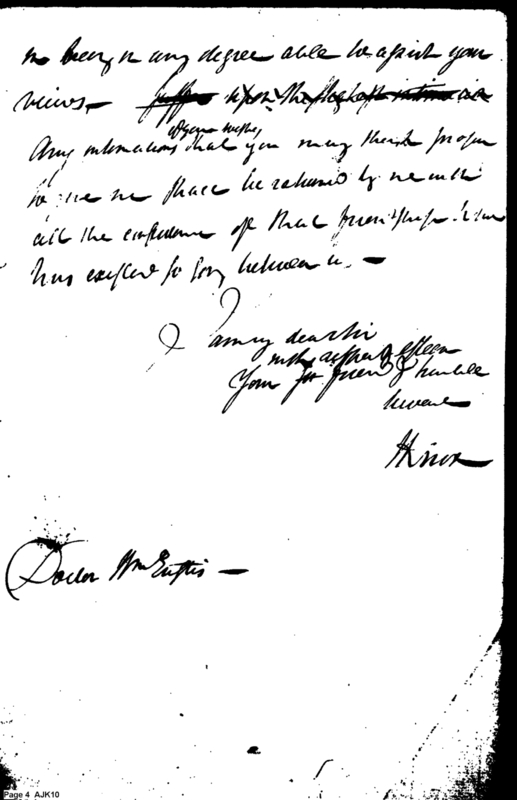 in being in any degree able to assist your
views. — suffer upon the
of your wishes
Any intimations that you may think proper
to me shall be retained by me with
all the confidence of that friendship
has existed so long between us. —
I am my dear Sir
with respect & esteem
Your friend & humble
servant
HKnox
Doctor Wm Eustis —
Page 4 AJK10